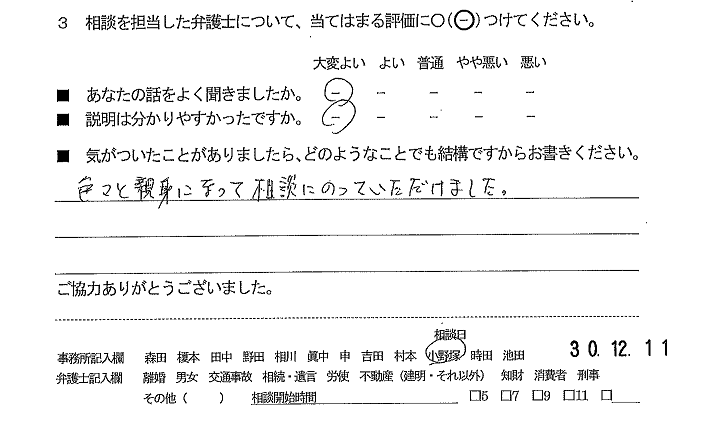 3 相談を担当した弁護士について、当てはまる評価に○(⊖)つけてください。
大変よい よい 普通 やや悪い 悪い
■ あなたの話をよく聞きましたか。 － － － － －
■ 説明は分かりやすかったですか。 － － － － －
■ 気がついたことがありましたら、どのようなことでも結構ですからお書きください。
色々と親身になって相談にのっていただけました。
ご協力ありがとうございました。
相談日
事務所記入欄 森田 榎本 田中 野田 相川 眞中 申 吉田 村本 小野塚 時田 池田 30.12.11
弁護士記入欄 離婚 男女 交通事故 相続・遺言 労使 不動産（建明・それ以外） 知財 消費者 刑事
その他（ ） 相談開始時間 □5 □7 □9 □11 □